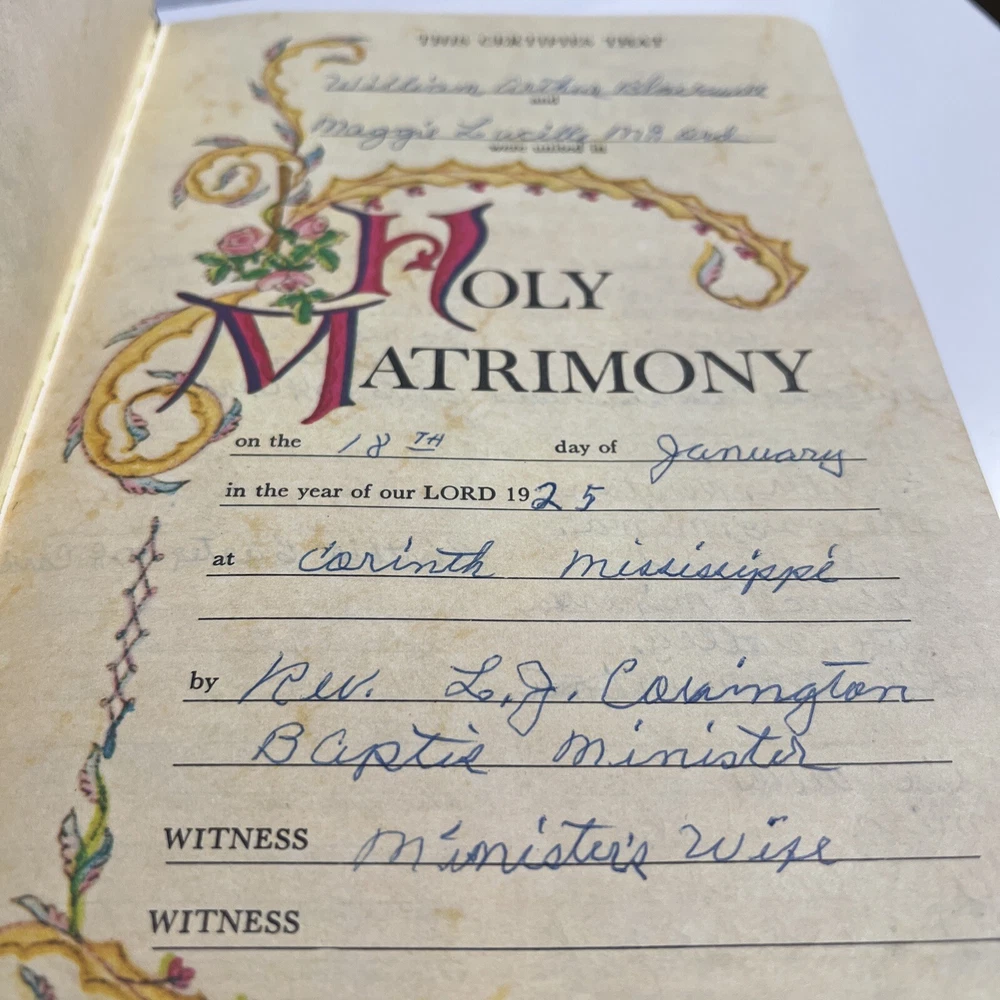 THIS CERTIFIES THAT
William Arthur
and
Maggie Lucille
were united in
HOLY
MATRIMONY
on the 18TH day of January
in the year of our LORD 1925
at Corinth Mississippi
by Rev. L.J. Covington
Baptis Minister
WITNESS Minister's Wife
WITNESS